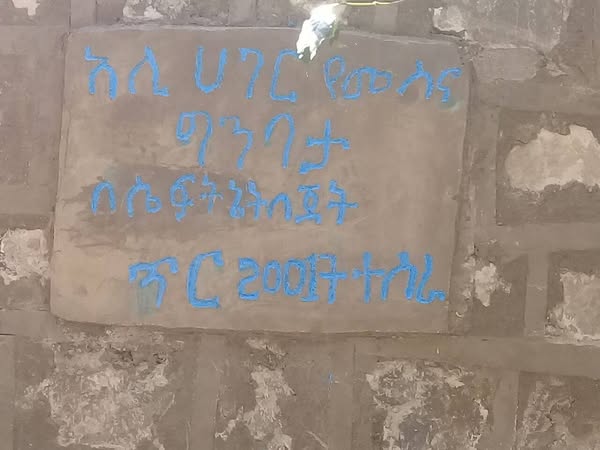 አሊ ሀገር የመስኖ
ግንባታ
በሴፍትኔትበጀት
ጥር 2001ተሰራ